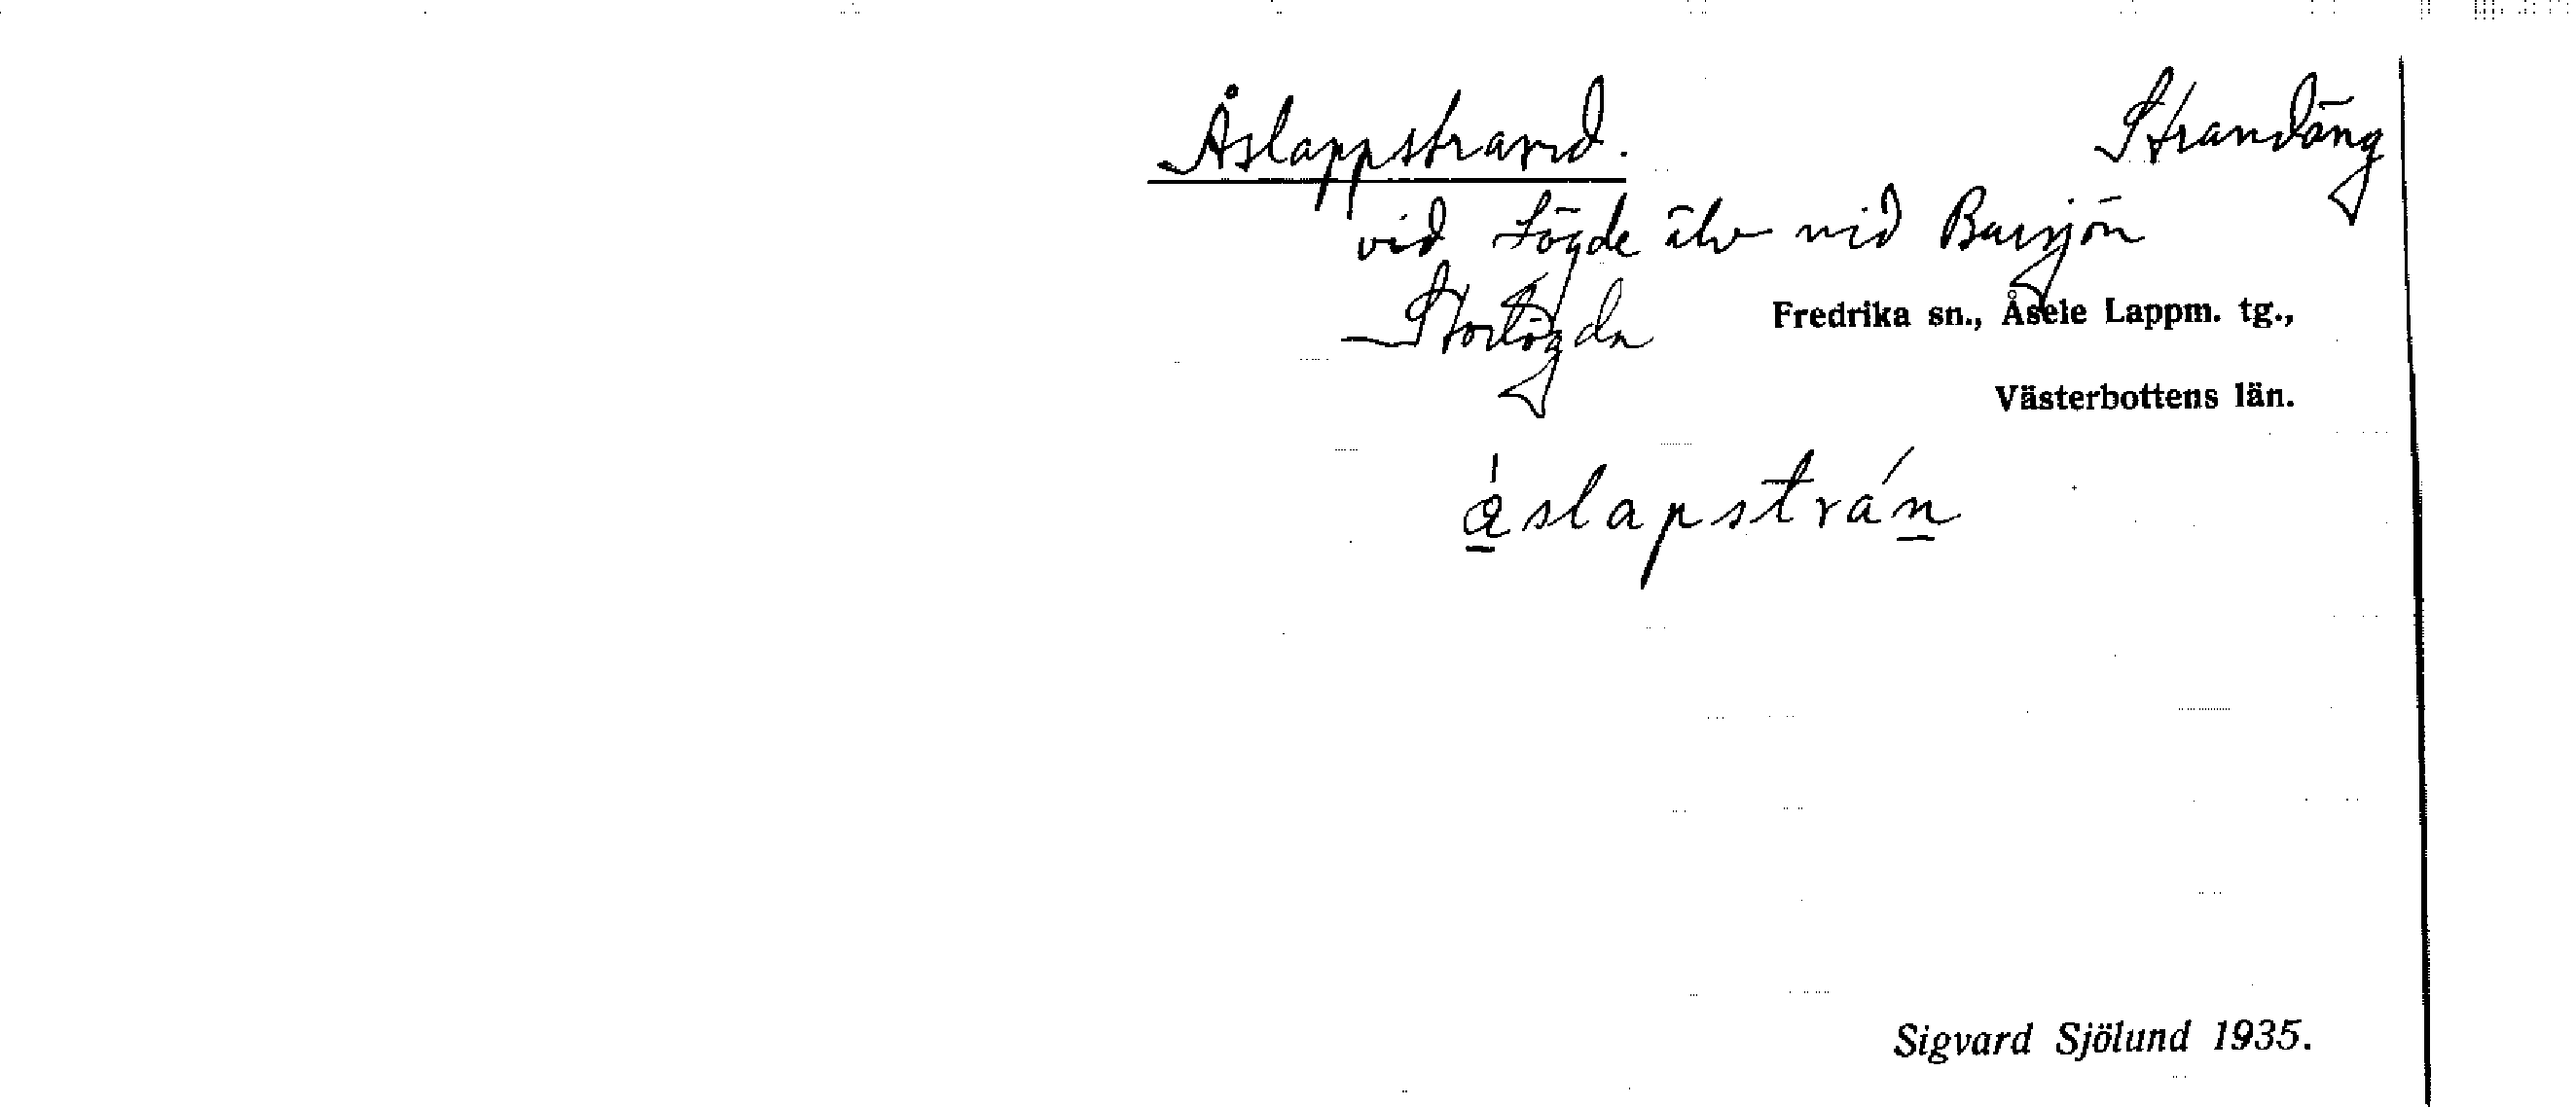 Åslappstrand. Strandäng
vid Lögde älv vid Bursjön
Storlögda Fredrika sn., Åsele Lappm. tg.,
Västerbottens län.
ǻ̲slapstrán̲
Sigvard Sjölund 1935.